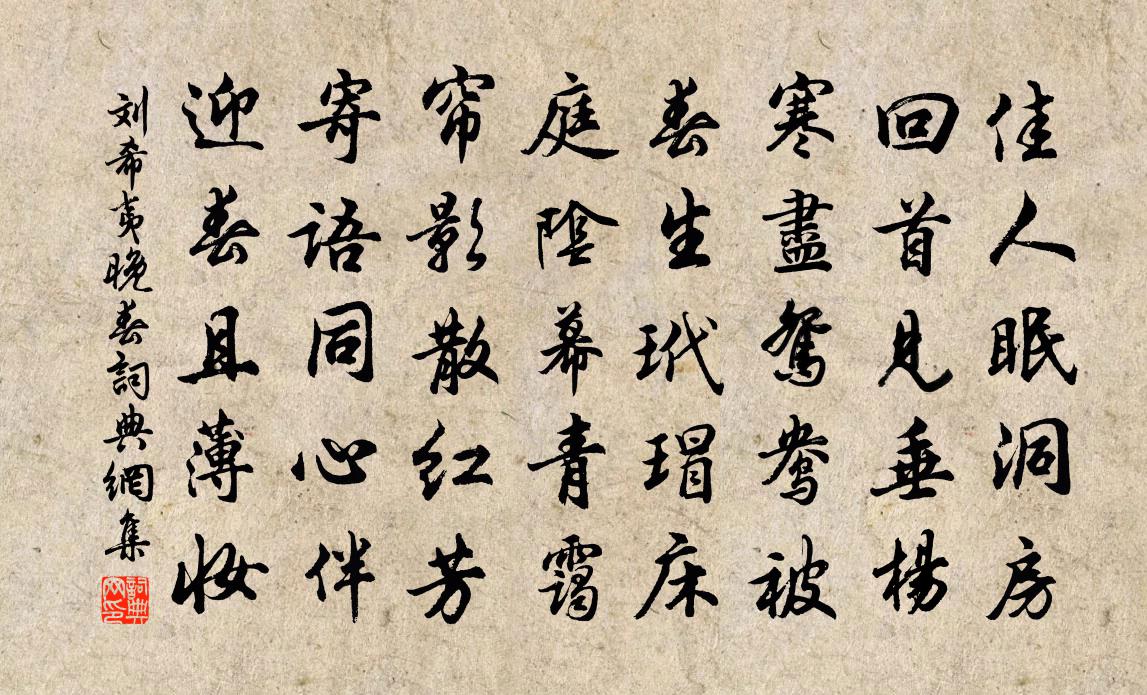 佳人眠洞房
回首見垂楊
寒盡鴛鴦被
春生玳瑁床
庭陰幕青靄
帘影散红芳
寄語同心伴
迎春且薄妝
刘希夷晚春詞典網集
詞典网印